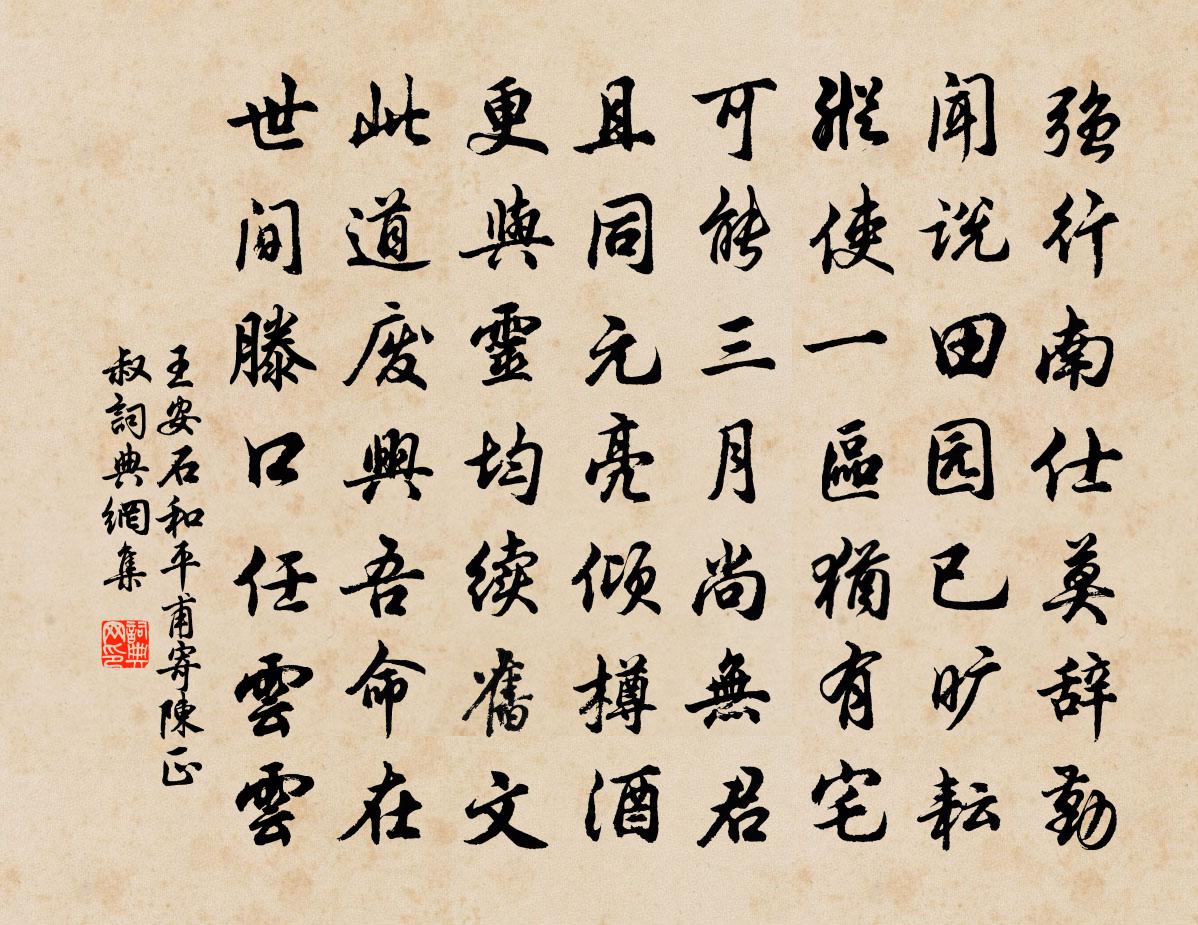 强行南仕莫辞勤
闻说田园已旷耘
縱使一區猶有宅
可能三月尚無君
且同元亮倾樽酒
更與靈均续舊文
此道废興吾命在
世间滕口任雲雲
王安石和平甫寄陳正
叔詞典網集
詞典网印